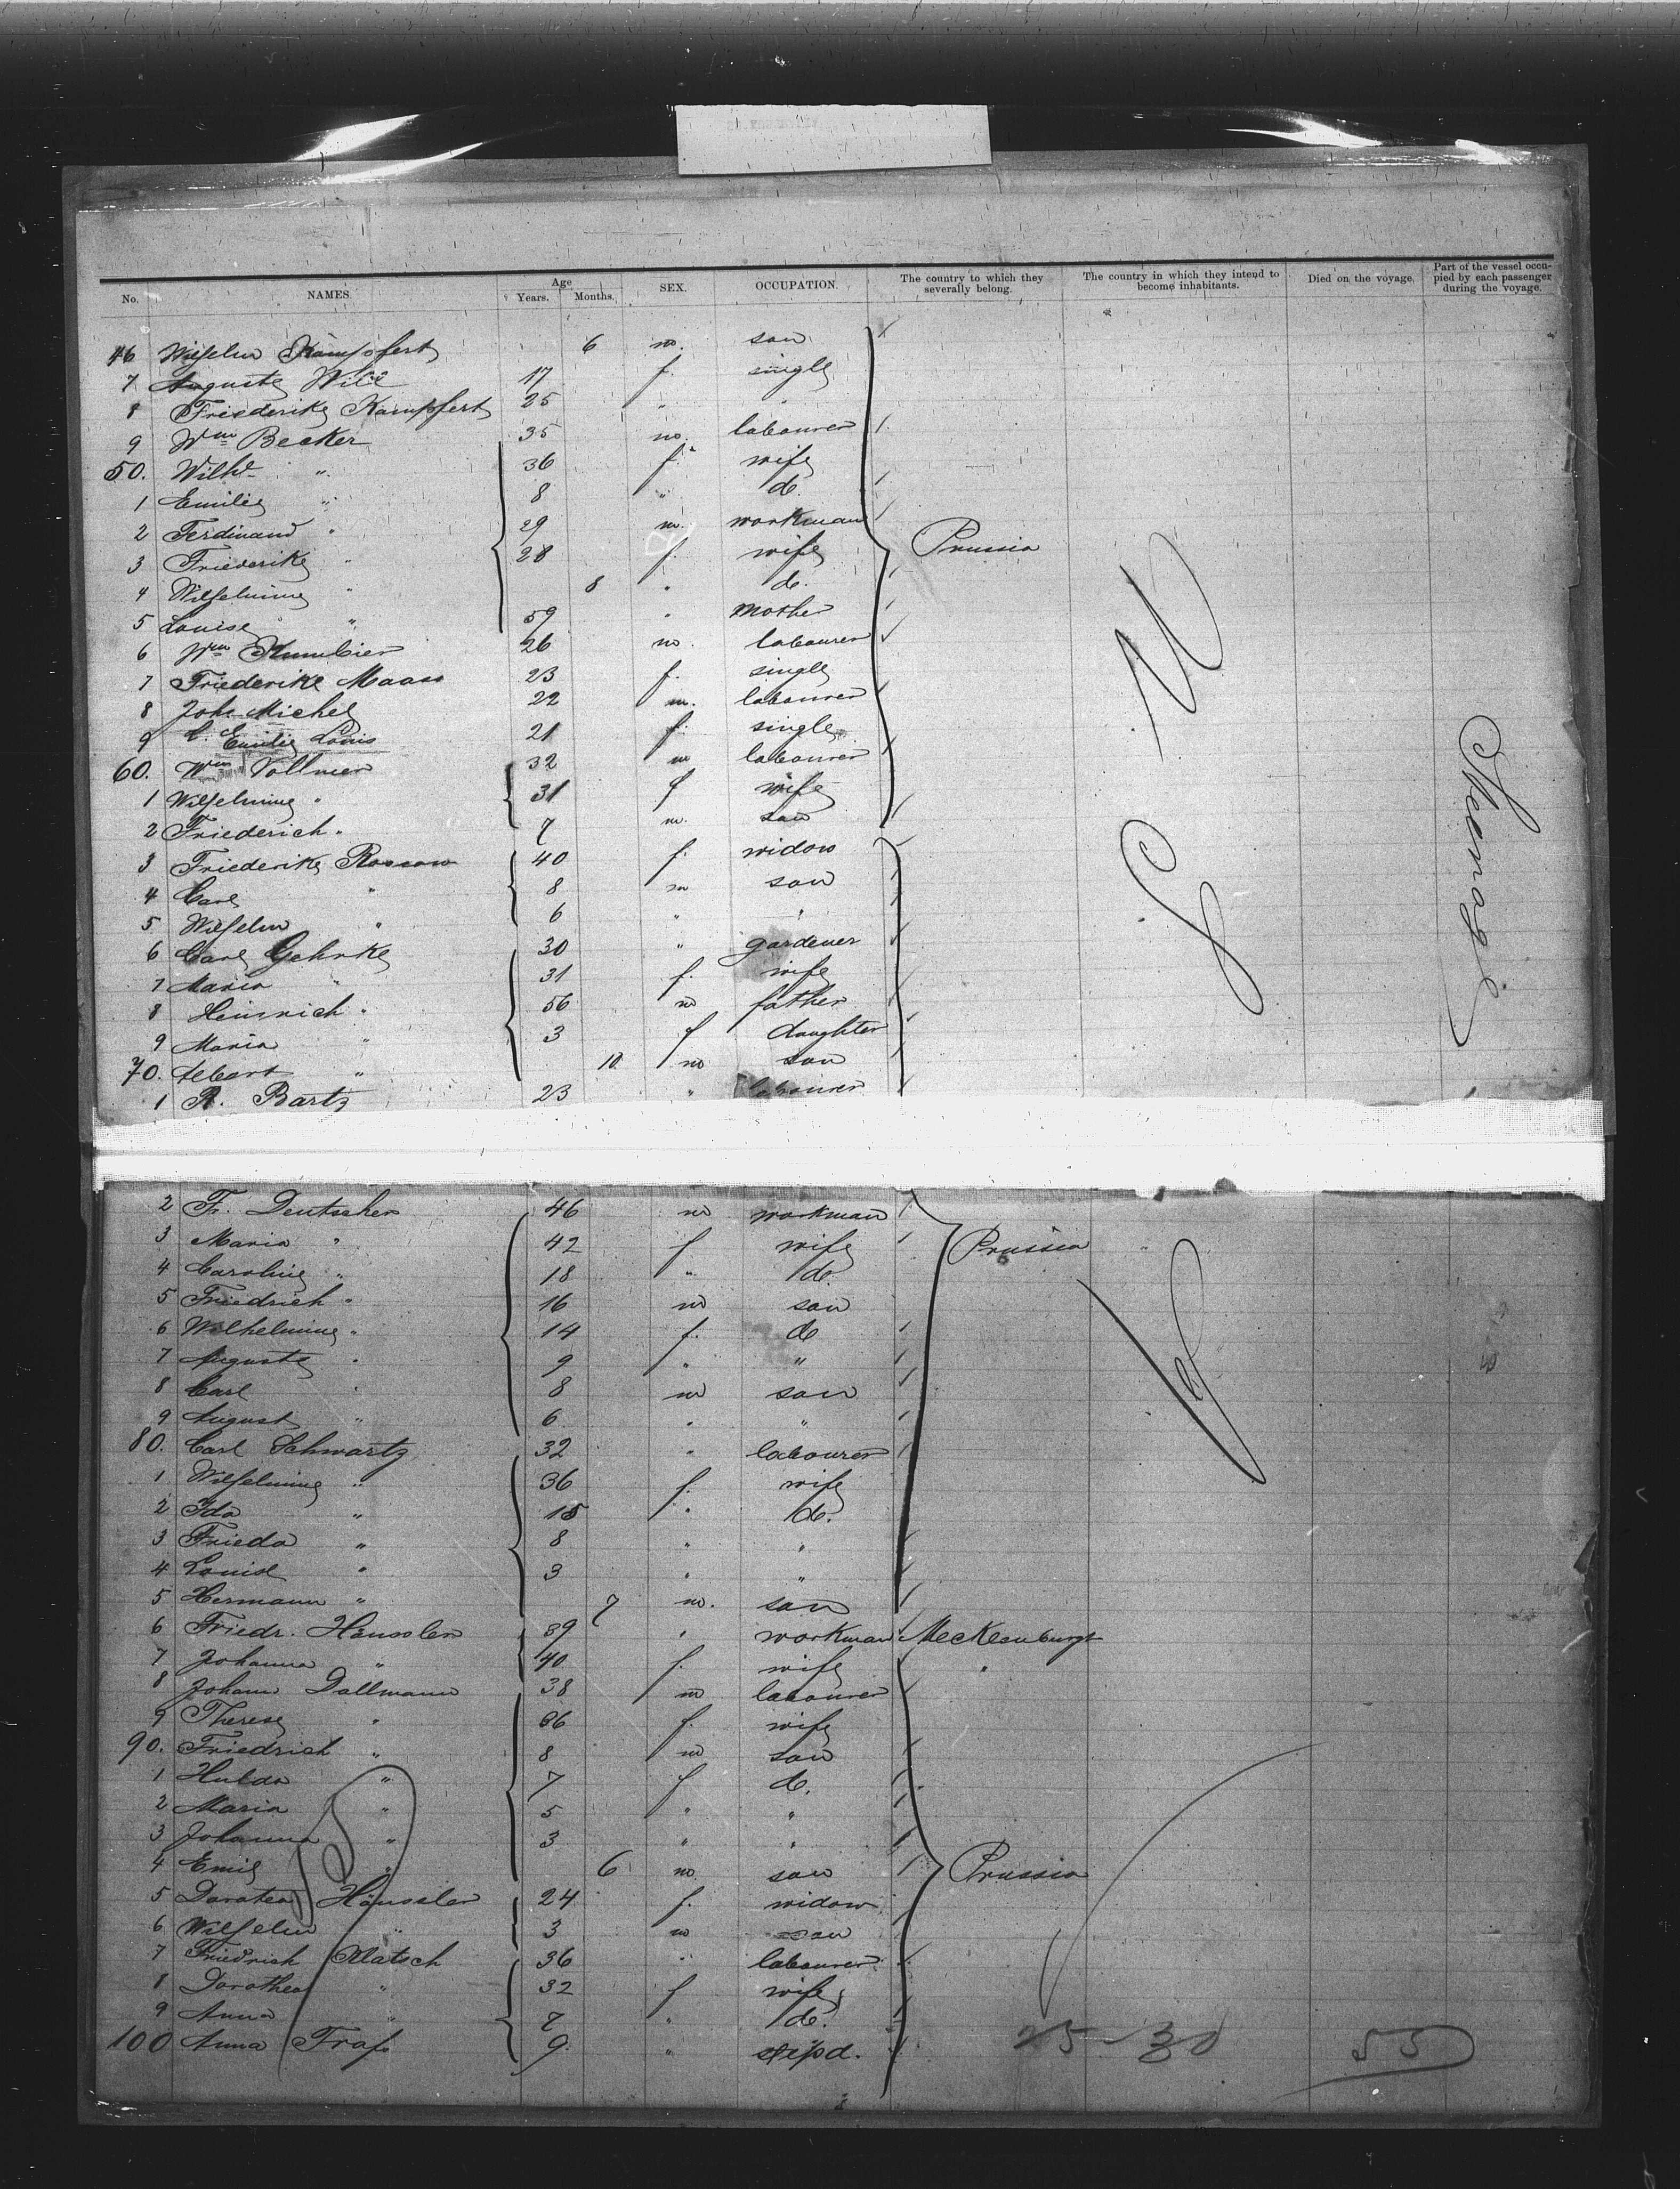 No. NAMES. Age Years. Months. SEX. OCCUPATION. The country to which they severally belong. The country in which they intend to become inhabitants. Died on the voyage. Part of the vessel occupied by each passenger during the voyage.
46 Wilhelm Kämpfert 6 m. son
7 Auguste Will 17 f. single
8 Friederike Kämpfert 25 " "
9 Wm Becker 35 m. labourer
50. Wilhe " 36 f. wife
1 Emilie " 8 " d.
2 Ferdinand " 29 m. workman Prussia
3 Friederike " 28 f. wife
4 Wilhelmine " 8 " d.
5 Louise " 59 " mother
6 Wm Kumbier 26 m. labourer
7 Friederike Maass 23 f. single
8 Joh. Michel 22 m. labourer
9 Emilie Louis 21 f. single
60. Wm Vollmer 32 m labourer
1 Wilhelmine " 31 f wife
2 Friederich " 7 m. son
3 Friederike Roscow 40 f. widow
4 Carl " 8 m son
5 Wilhelm " 6 " "
6 Carl Gehrke 30 " gardener
7 Maria " 31 f. wife
8 Heinrich " 56 m father
9 Maria " 3 f daughter
70. Albert " 10 m son
1 R. Bartz 23 " labourer
U S
Steerage
2 Fr. Deutscher 46 m workman
3 Maria " 42 f wife Prussia
4 Caroline " 18 " d.
5 Friedrich " 16 m son
6 Wilhelmine " 14 f. d
7 Auguste " 9 " "
8 Carl " 8 m son
9 August " 6 " "
80. Carl Schwartz 32 " labourer
1 Wilhelmine " 36 f. wife
2 Ida " 15 " d.
3 Frieda " 8 " "
4 Louise " 3 " "
5 Hermann " 7 m. son
6 Friedr. Häussler 39 " workman Mecklenburg
7 Johanna " 40 f. wife "
8 Johann Dallmann 38 m labourer
9 Therese " 36 f. wife
90. Friedrich " 8 m son
1 Hulda " 7 f d.
2 Maria " 5 " "
3 Johanna " 3 " "
4 Emil " 6 m son Prussia
5 Dorotea Häussler 24 f. widow
6 Wilhelm " 3 m son
7 Friedrich Klatsch 36 " labourer
8 Dorothea " 32 f wife
9 Anna " 7 " d.
100 Anna Frap 9. "
25-30 55